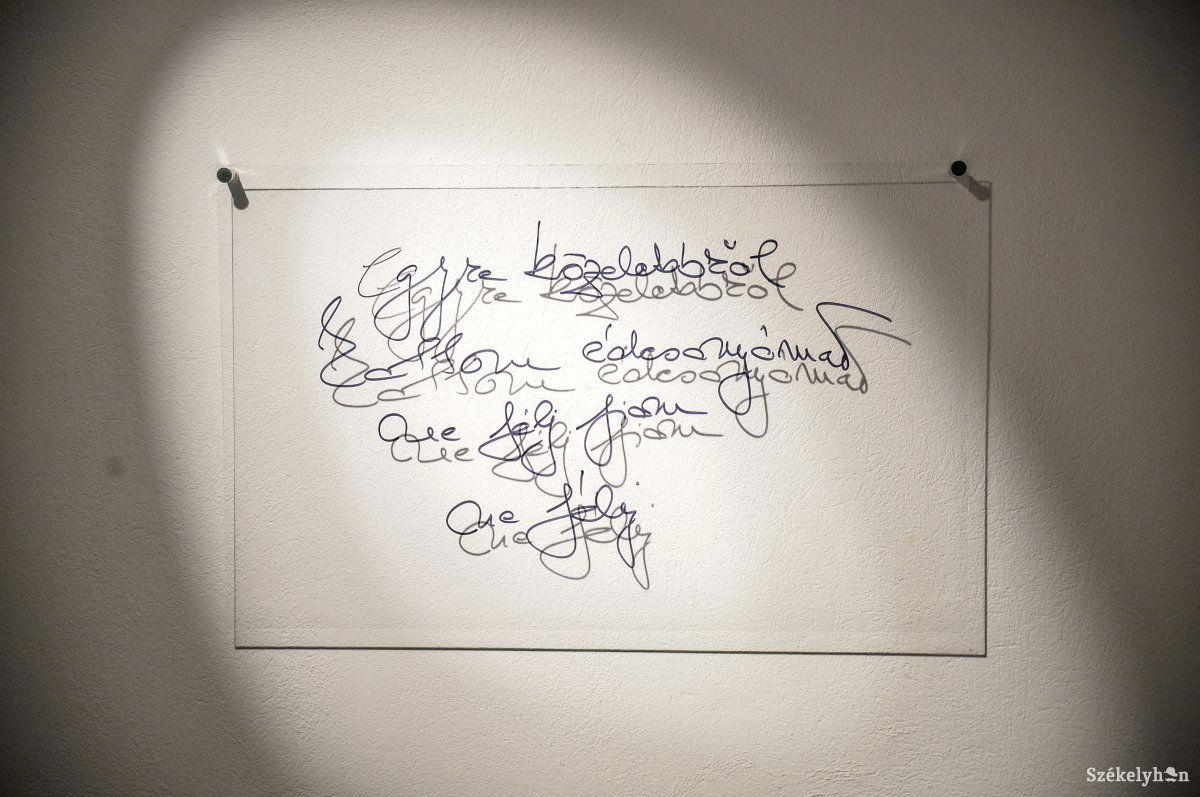 Egyre közelebbről
Hallom édesanyámat
ne félj fiam
ne félj
Székelyhon